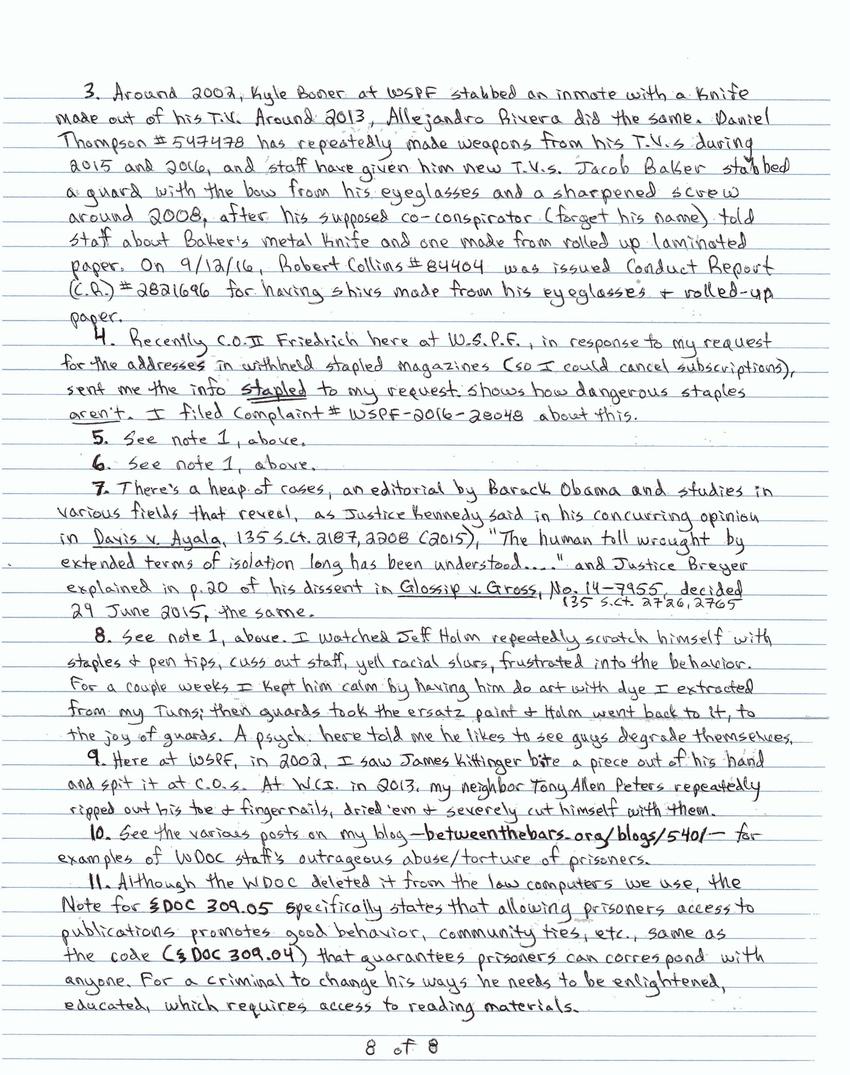 3. Around 2002, Kyle Boner at WSPF stabbed an inmate with a knife
made out of his T.V. Around 2013, Allejandro Rivera did the same. Daniel
Thompson #547478 has repeatedly made weapons from his T.V.s during
2015 and 2016, and staff have given him new T.V.s. Jacob Baker stabbed
a guard with the bow from his eyeglasses and a sharpened screw
around 2008, after his supposed co-conspirator (forget his name) told
staff about Baker's metal knife and one made from rolled up laminated
paper. On 9/12/16, Robert Collins #84404 was issued Conduct Report
(C.R.) #2821696 for having shivs made from his eyeglasses & rolled-up
paper.
4. Recently C.O.II Friedrich here at W.S.P.F., in response to my request
for the addresses in withheld stapled magazines (so I could cancel subscriptions),
sent me the info stapled to my request. Shows how dangerous staples
aren't. I filed Complaint # WSPF-2016-28048 about this.
5. See note 1, above.
6. See note 1, above.
7. There's a heap of cases, an editorial by Barack Obama and studies in
various fields that reveal, as Justice Kennedy said in his concurring opinion
in Davis v. Ayala, 135 S.Ct. 2187, 2208 (2015), "The human toll wrought by
extended terms of isolation long has been understood...." and Justice Breyer
explained in p.20 of his dissent in Glossip v. Gross, No. 14-7955, decided
135 S.Ct. 2726, 2765
29 June 2015, the same.
8. See note 1, above. I watched Jeff Holm repeatedly scratch himself with
staples & pen tips, cuss out staff, yell racial slurs, frustrated into the behavior.
For a couple weeks I kept him calm by having him do art with dye I extracted
from my Tums; then guards took the ersatz paint & Holm went back to it, to
the joy of guards. A psych. here told me he likes to see guys degrade themselves.
9. Here at WSPF, in 2002, I saw James Kittinger bite a piece out of his hand
and spit it at C.O.s. At WCI. in 2013, my neighbor Tony Allen Peters repeatedly
ripped out his toe & fingernails, dried 'em & severely cut himself with them.
10. See the various posts on my blog—betweenthebars.org/blogs/5401—for
examples of WDOC staff's outrageous abuse/torture of prisoners.
11. Although the WDOC deleted it from the law computers we use, the
Note for §DOC 309.05 specifically states that allowing prisoners access to
publications promotes good behavior, community ties, etc., same as
the code (§DOC 309.04) that guarantees prisoners can correspond with
anyone. For a criminal to change his ways he needs to be enlightened,
educated, which requires access to reading materials.
8 of 8